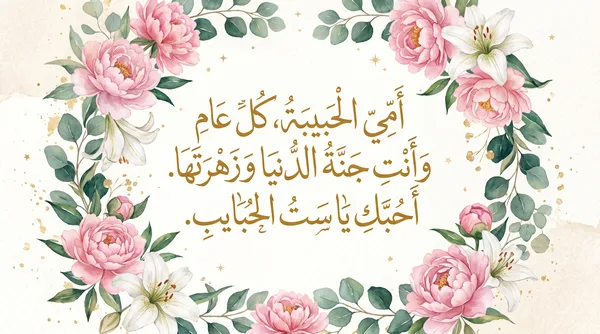 أَمِّيّ الْحَبِيبَةُ، كُلِّ عَامٍ
وَأَنْتِ جَنَّةُ الدُّنْيَا وَزَهْرَتَهَا.
أَحُبَّكِ يَا سَتُ الْحُبَايِبِ.